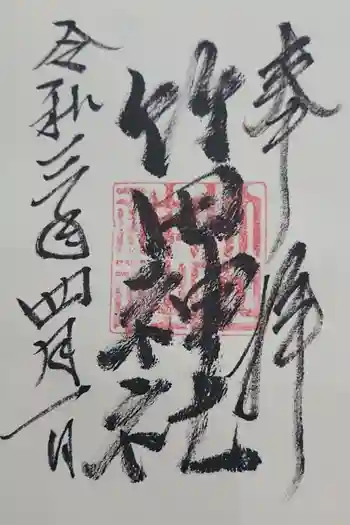 奉拝
竹田神社
令和三年四月一日